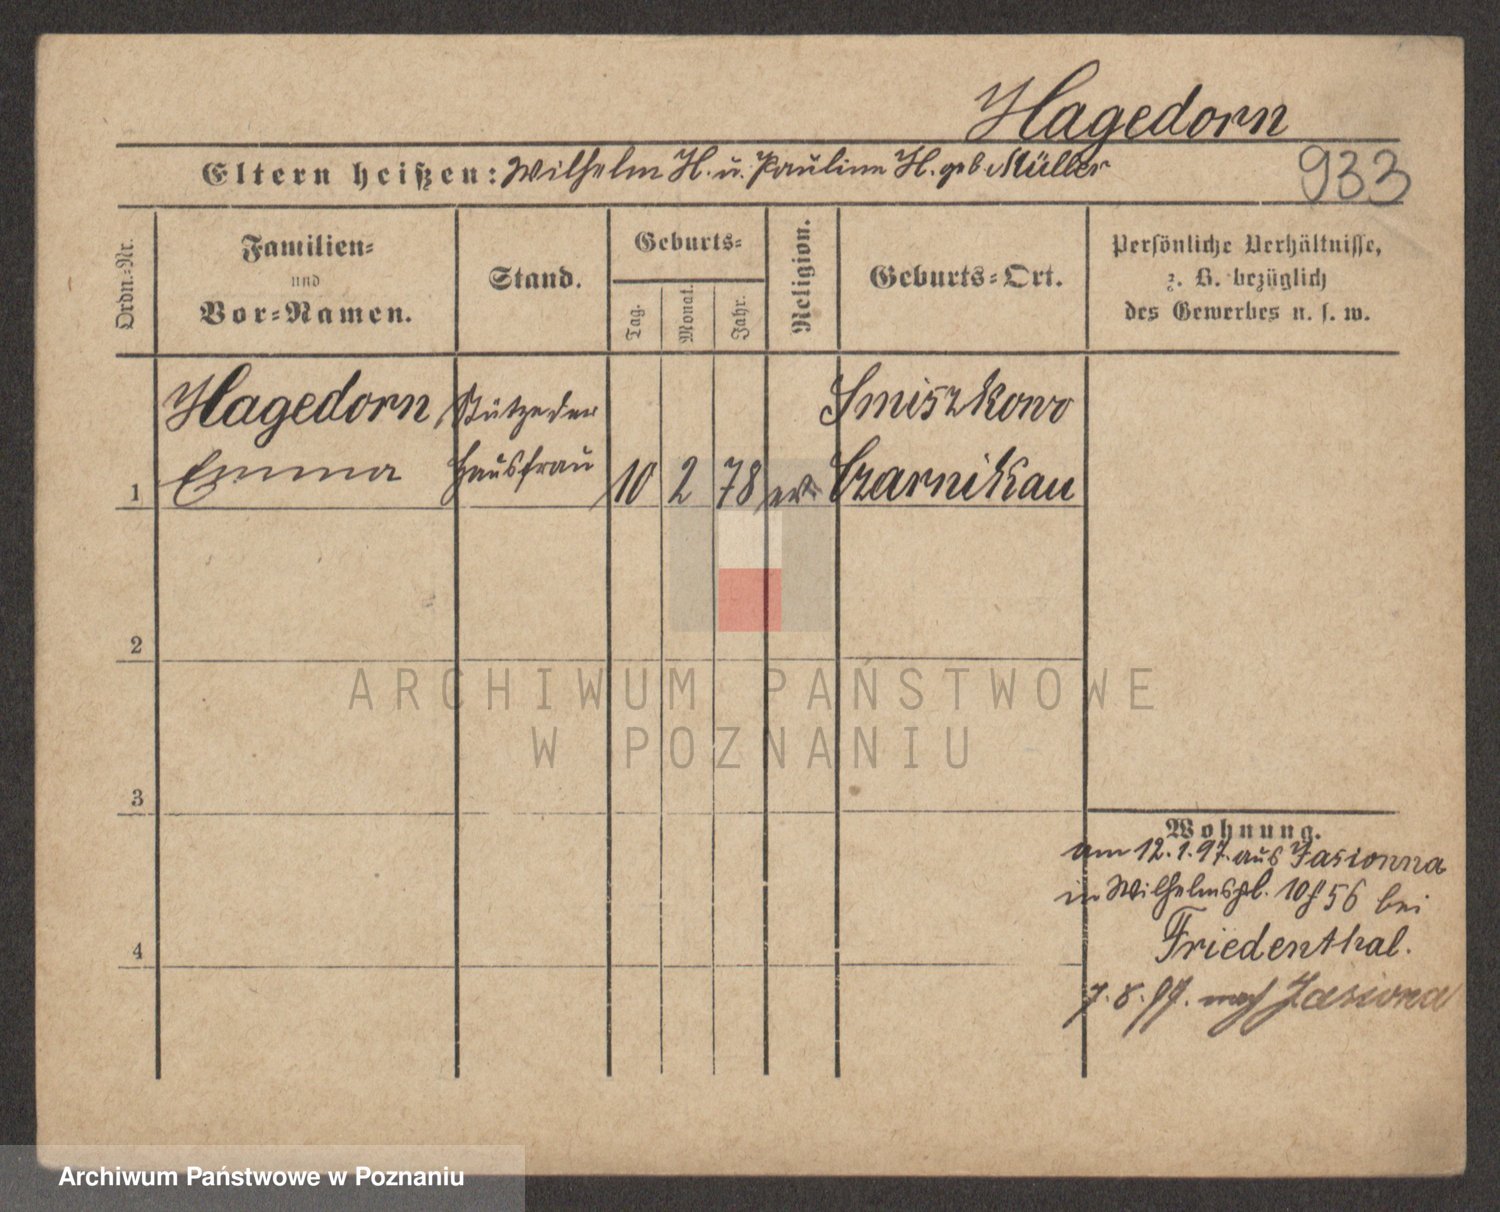 Hagedorn
Eltern heißen: Wilhelm H. u. Pauline H. geb. Müller
933
Ordn.-Nr.
Familien-
und
Vor-Namen.
Stand.
Geburts-
Tag.
Monat.
Jahr.
Religion.
Geburts-Ort.
Persönliche Verhältnisse,
z. B. bezüglich
des Gewerbes u. s. w.
Hagedorn Stütze der Smiszkowo
1 Emma Hausfrau 10 2 78 ev. Czarnikau
2
3
4
Wohnung.
am 12.1.97. aus Jasionna
in Wilhelmspl. 10 56 bei
Friedenthal.
7.8.97. nach Jasiona
ARCHIWUM PAŃSTWOWE
W POZNANIU
Archiwum Państwowe w Poznaniu